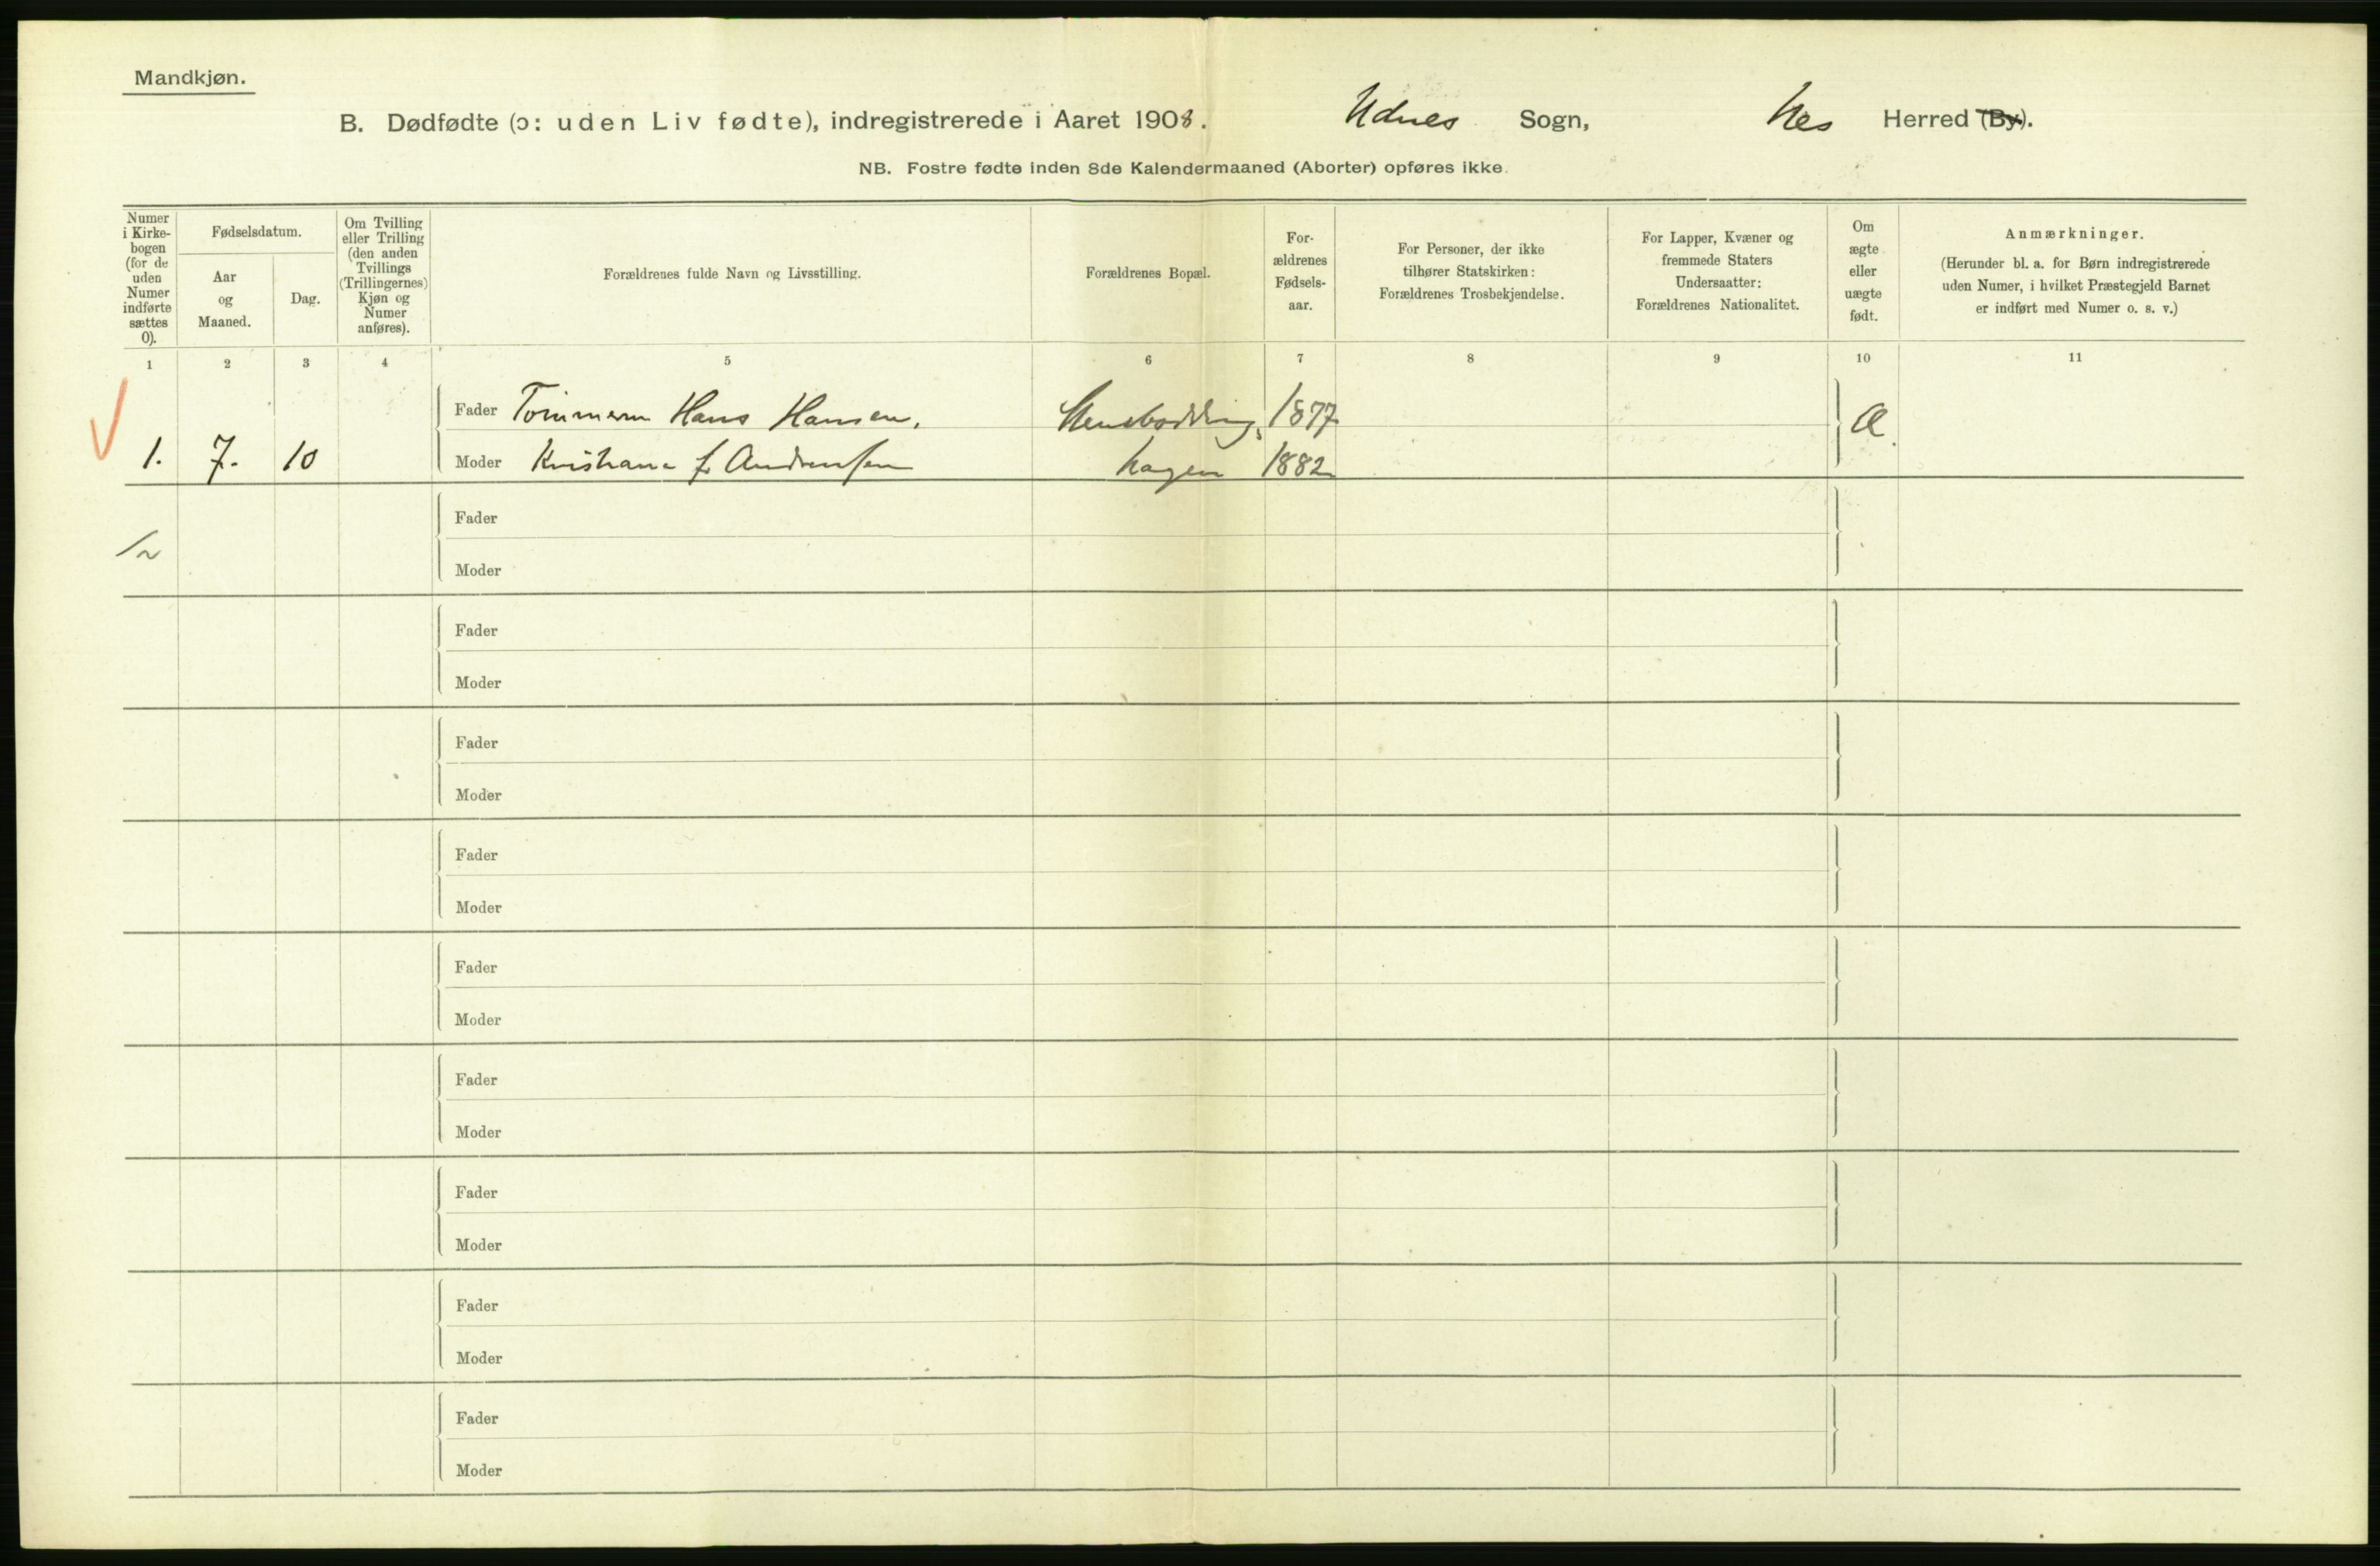 Mandkjøn.
B. Dødfødte (ɔ: uden Liv fødte), indregistrerede i Aaret 1908. Udnes Sogn, Nes Herred (By).
NB. Fostre fødte inden 8de Kalendermaaned (Aborter) opføres ikke.
Numer i Kirke-bogen (for de uden Numer indførte sættes 0).
Fødselsdatum.
Aar og Maaned.
Dag.
Om Tvilling eller Trilling (den anden Tvillings (Trillingernes) Kjøn og Numer anføres).
Forældrenes fulde Navn og Livsstilling.
Forældrenes Bopæl.
For-ældrenes Fødsels-aar.
For Personer, der ikke tilhører Statskirken: Forældrenes Trosbekjendelse.
For Lapper, Kvæner og fremmede Staters Undersaatter: Forældrenes Nationalitet.
Om ægte eller uægte født.
Anmærkninger.
(Herunder bl. a. for Børn indregistrerede uden Numer, i hvilket Præstegjeld Barnet er indført med Numer o. s. v.)
1 2 3 4 5 6 7 8 9 10 11
Fader Tømmerm Hans Hansen, 1877 Æ.
1. 7. 10 Moder Kristiane f. Andreasen hagen 1882
Fader
Moder
Fader
Moder
Fader
Moder
Fader
Moder
Fader
Moder
Fader
Moder
Fader
Moder
Fader
Moder
Fader
Moder